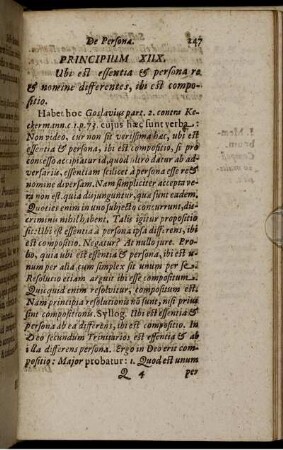 De Persona. 247
PRINCIPIUM XIIX.
Ubi est essentia & persona re
& nomine differentes, ibi est compo-
sitio.
Habet hoc Goslavius part. 2. contra Ke-
kermann. c. 1. p. 73. cujus hæc sunt verba.
Non video, cur non sit verissima hæc, ubi est
essentia & persona, ibi est compositio, si pro
concesso accipiatur id, quod ultro datur ab ad-
versariu, essentiam scilicet à persona esse re &
nomine diversam. Nam simpliciter accepta ve-
ra non est, quia disjunguntur, qua sunt eadem.
Quoties enim in uno subjecto concurrunt, dis-
criminis nihil habent, Talis igitur propositio
sit: Ubi est essentia à persona ipsa differens, ibi
est compositio. Negatur? At nullo jure. Pro-
bo, quia ubi est essentia & persona, ibi est u-
num per alia cum simplex sit unum per se.
Resolutio etiam arguit ibi esse compositum.
Quicquid enim resolvitur, compositum est.
Nam principia resolutionis nõ sunt, nisi prius
sint compositionis. Syllog. Ubi est essentia &
persona ab ea differens, ibi est compositio. In
Deo secundum Trinitarios est essentia & ab
illa differens persona. Ergo in Deo erit com-
positio: Major probatur: 1. Quod est unum
Q 4 per